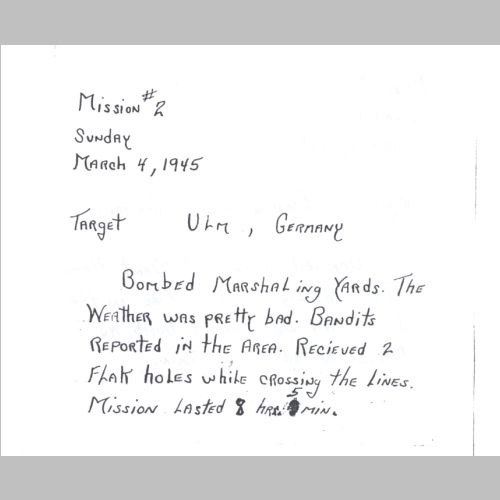 Mission #2
Sunday
March 4, 1945
Target Ulm, Germany
Bombed Marshaling Yards. The
Weather was pretty bad. Bandits
reported in the area. Recieved 2
Flak holes while crossing the lines.
Mission lasted 8 hrs. 5 min.